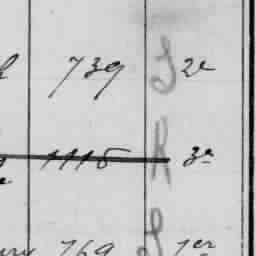 739 J 2e
1115 K 3e
769 L 1er